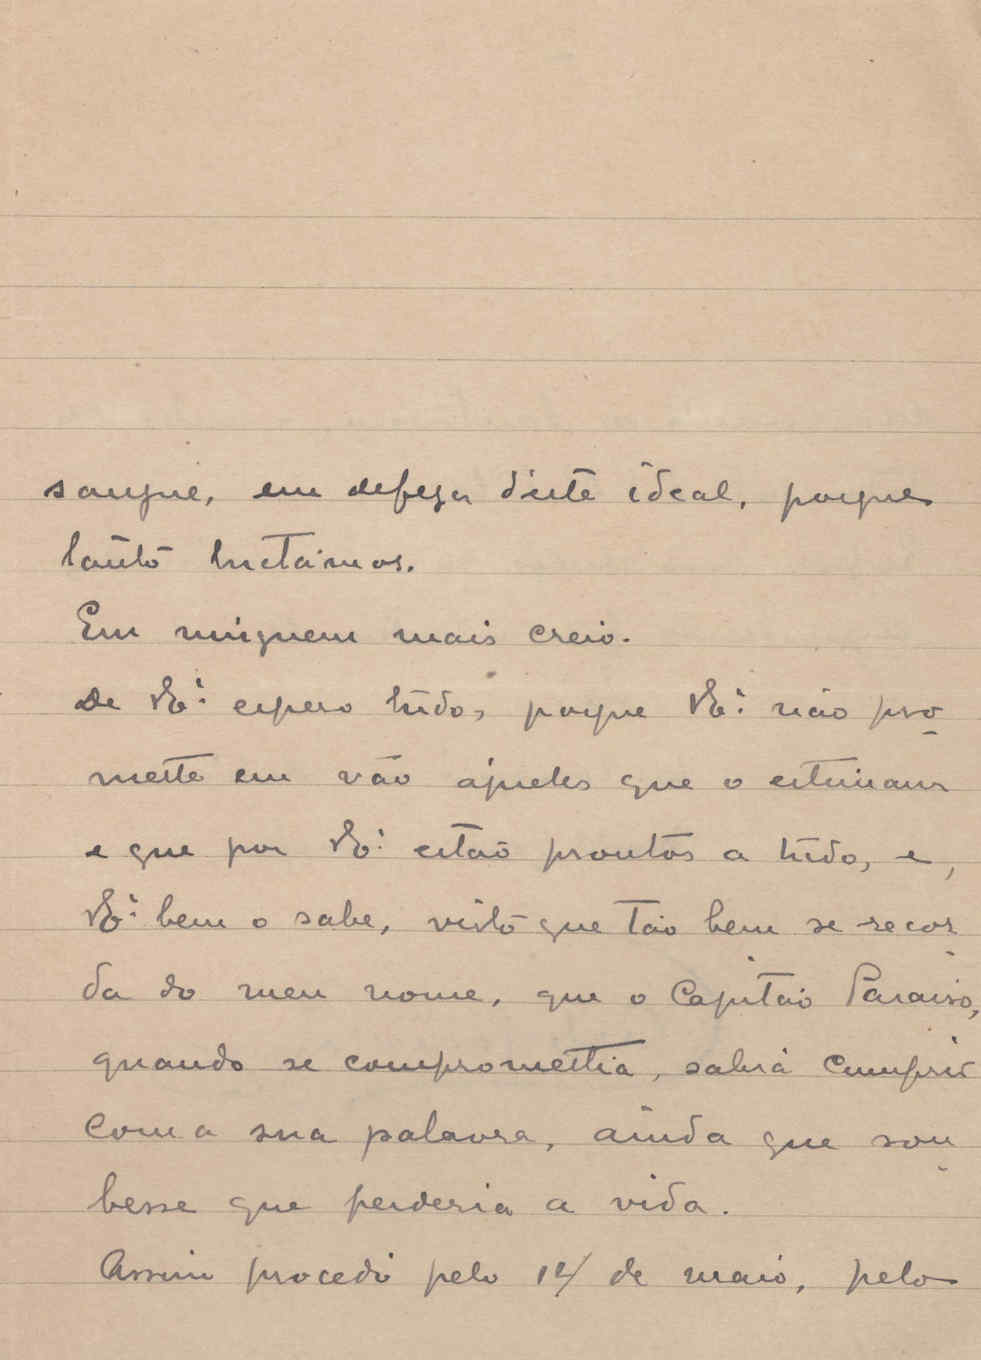 sangue, em defeza d'este ideal, porque
tanto luctámos.
Em ninguem mais creio.
De V. Ex.ª espero tudo, porque V. Ex.ª não pro-
mette em vão áqueles que o estimam
e que por V. Ex.ª estão prontos a tudo, e,
V. Ex.ª bem o sabe, visto que tão bem se recor-
da do meu nome, que o Capitão Paraiso,
quando se compromettia, sabia cumprir
com a sua palavra, ainda que sou-
besse que perderia a vida.
Assim procedi pelo 14 de maio, pelo